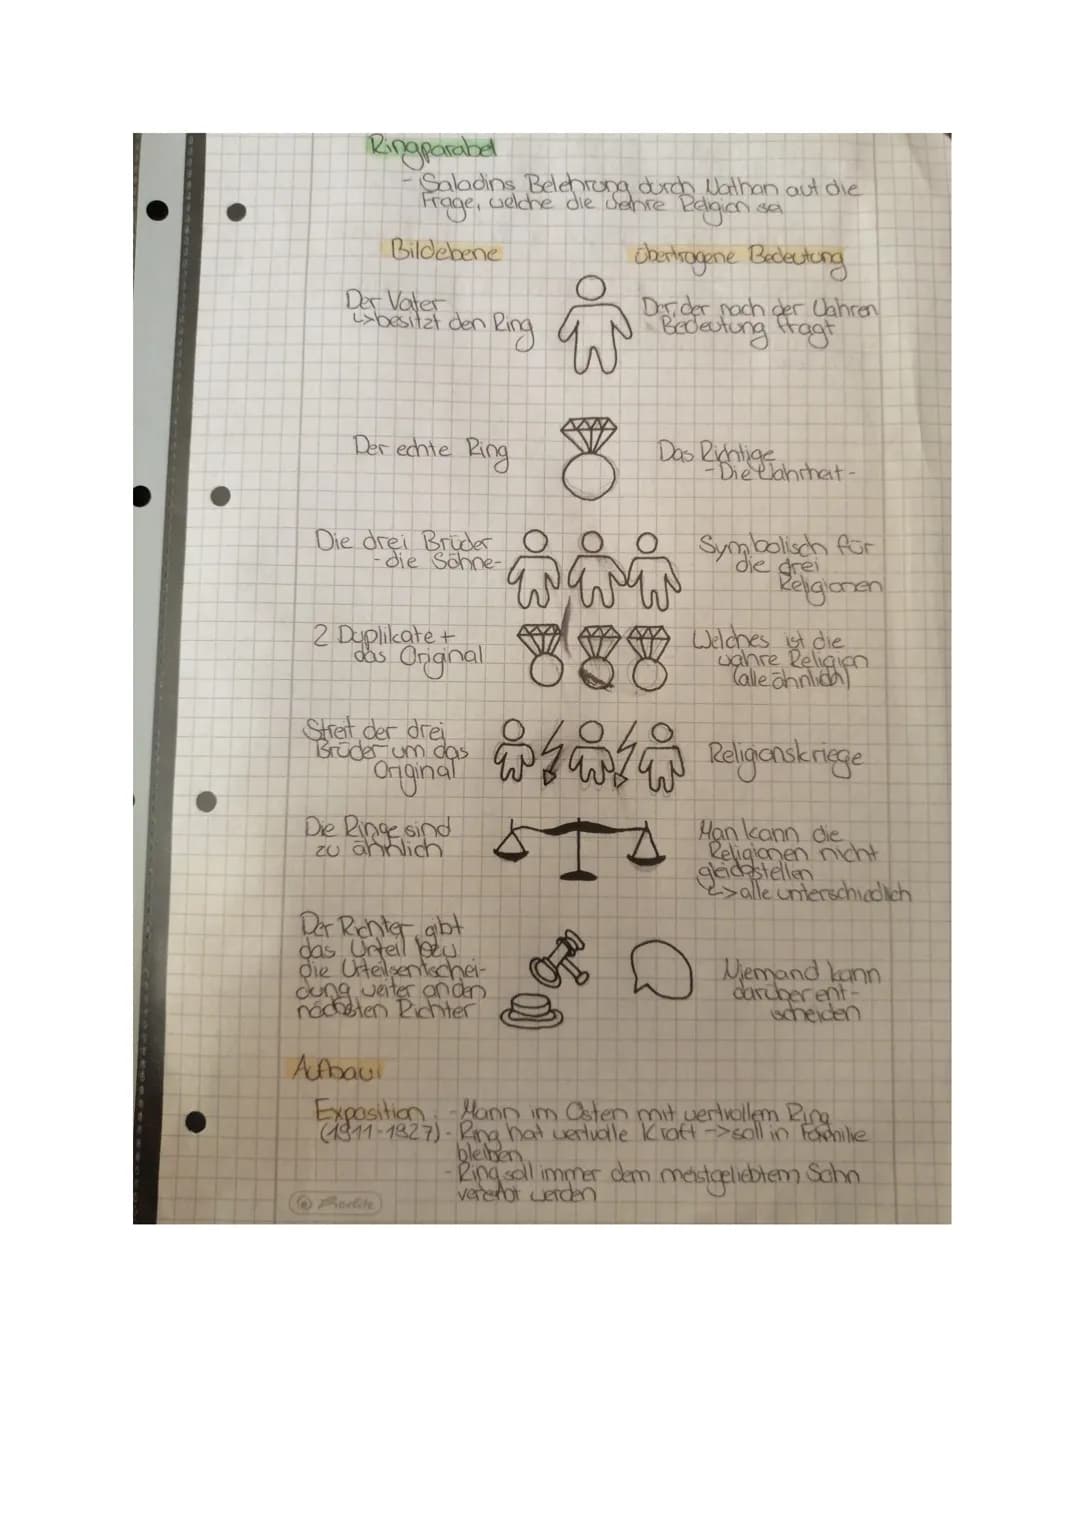 Ringparabel
- Saladins Belehrung durch Nathan auf die
Frage, welche die wahre Religion sei
Bildebene
übertragene Bedeutung
Der Vater
↳besitzt den Ring
Der, der nach der Wahren
Bedeutung fragt
Der echte Ring
Das Richtige
- Die Wahrheit -
Die drei Brüder
- die Söhne-
Symbolisch für
die drei
Religionen
2 Duplikate +
das Original
Welches ist die
wahre Religion
(alle ähnlich)
Streit der drei
Brüder um das
Original
Religionskriege
Die Ringe sind
zu ähnlich
Man kann die
Religionen nicht
gleichstellen
↳ alle unterschiedlich
Der Richter gibt
das Urteil bzw.
die Urteilsentschei-
dung weiter an den
nächsten Richter
Niemand kann
darüber ent-
scheiden
Aufbau:
Exposition: - Mann im Osten mit wertvollem Ring
(1911-1927) - Ring hat wertvolle Kraft -> soll in Familie
bleiben
- Ring soll immer dem meistgeliebtem Sohn
vererbt werden